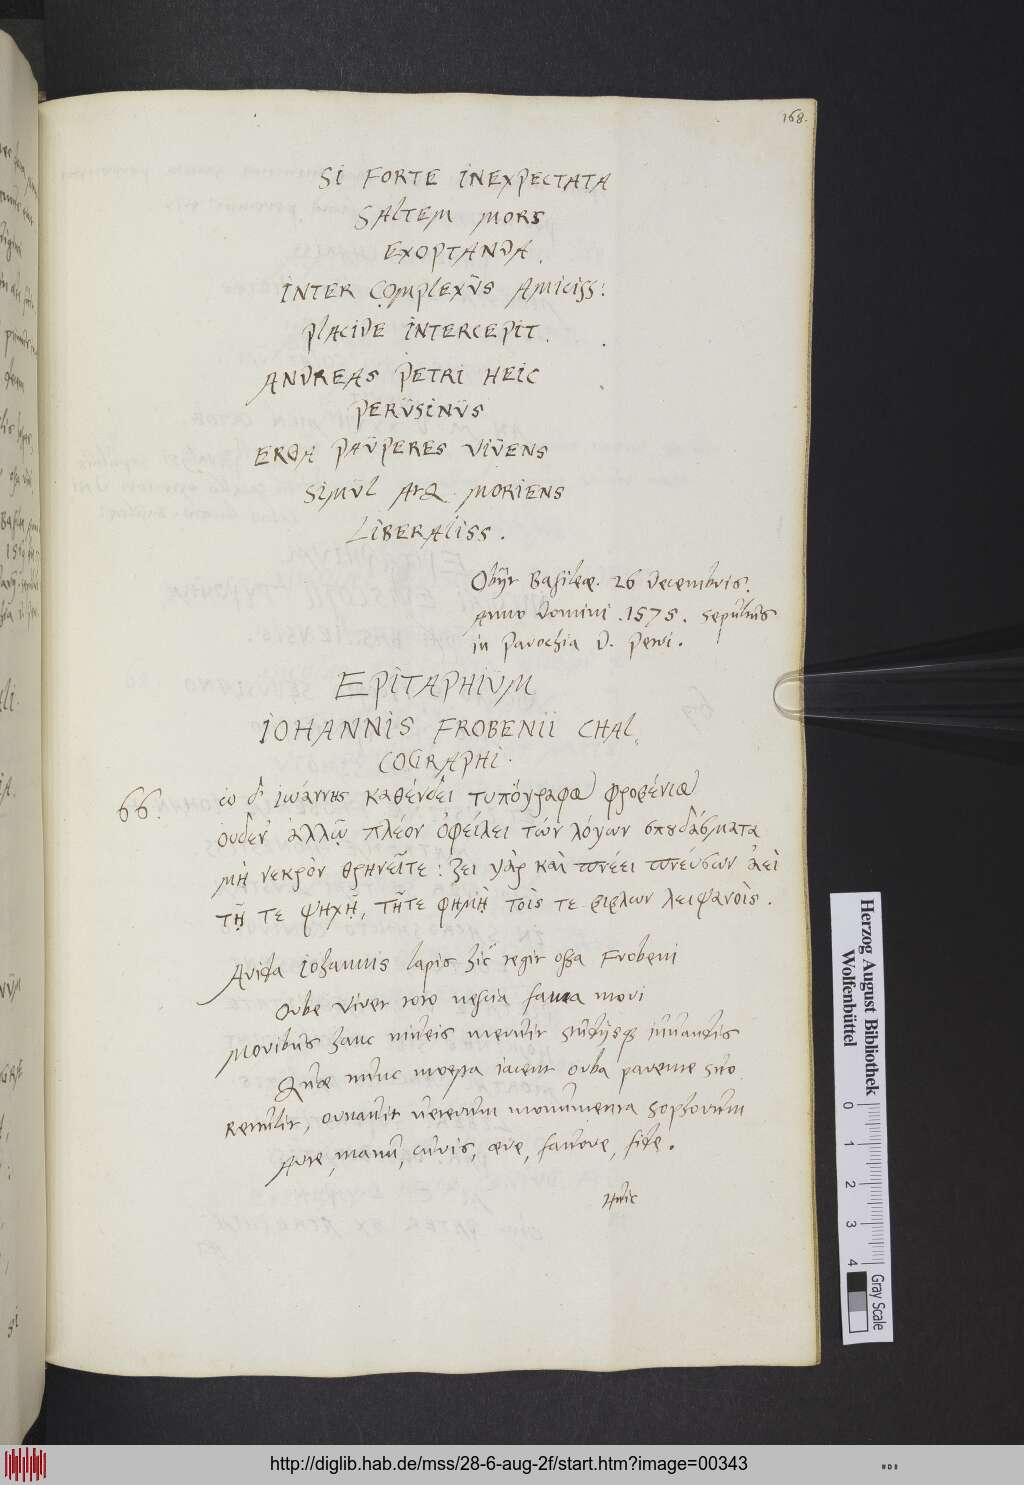 168.
SI FORTE INEXPECTATA
SALTEM MORS
EXOPTANDA.
INTER COMPLEXŬS AMICISS:
PLACIDE INTERCEPIT.
ANDREAS PETRI HEIC
PERŬSINŬS
ERGA PAŬPERES VIŬENS
SIMŬL ATQ. MORIENS
LIBERALISS.
Obijt Basileæ. 26 Decembris.
Anno Domini .1575. sepŭltŭs
in parochia D. Petri.
EPITAPHIŬM
IOHANNIS FROBENII CHAL
COGRAPHI.
66.
ὧδ' Ἰωάννης καθεύδει τυπόγραφος Φροβένιος
οὐδεν ἀλλῳ πλέον ὀφείλει τῶν λόγων σπουδάσματα
μὴ νεκρὸν θρηνεῖτε: ζει γὰρ καὶ πνέει πνεύσων ἀεὶ
τῇ τε ψηχῇ, τῇ τε φημῇ τοῖς τε βιβλων λειψανοῖς.
Arida Iohannis lapis hic tegit ossa Frobeni
Orbe viuet toto nescia fama mori
Moribŭs hanc niueis meruit stŭdijsq iuuantis
Qŭæ nŭnc moesta iacent orba parente sŭo
Retŭlit, ornauit ueterum monumenta sophorŭm
Arte, manŭ, cŭris, ære, fauore, fide.
Hŭic
Herzog August Bibliothek
Wolfenbüttel
0 1 2 3 4
Gray Scale
http://diglib.hab.de/mss/28-6-aug-2f/start.htm?image=00343